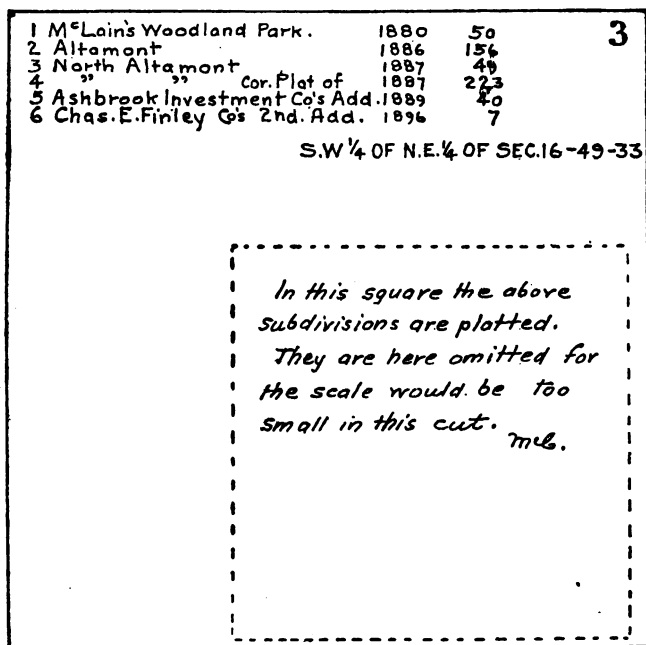 1 McLain's Woodland Park. 1880 50 3
2 Altamont 1886 156
3 North Altamont 1887 49
4 " " Cor. Plat of 1887 223
5 Ashbrook Investment Co's Add. 1889 40
6 Chas. E. Finley Co's 2nd. Add. 1896 7
S.W 1/4 OF N.E. 1/4 OF SEC. 16-49-33
In this square the above
subdivisions are platted.
They are here omitted for
the scale would be too
small in this cut.